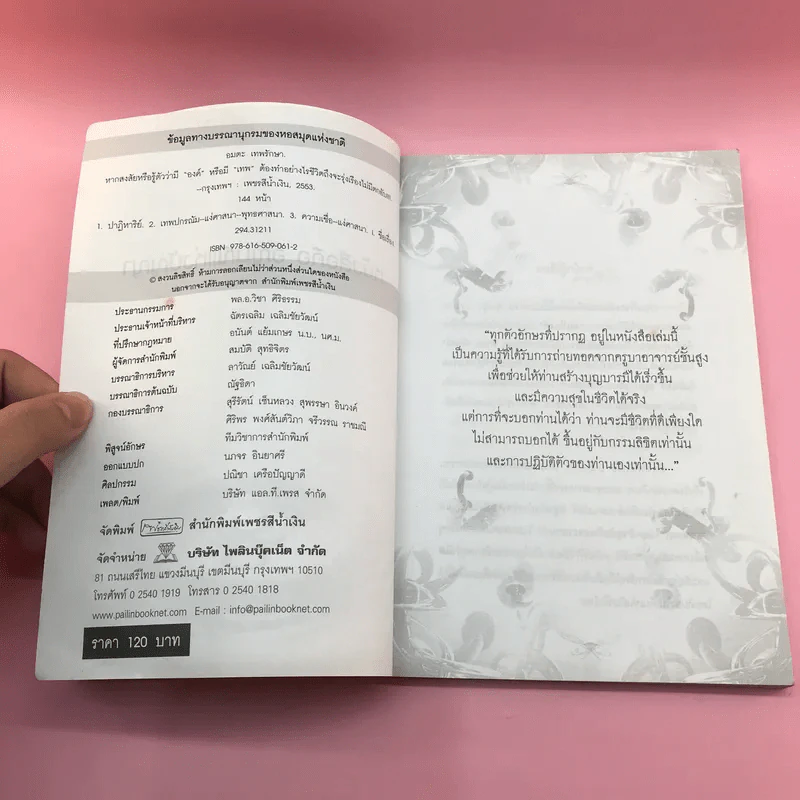 ข้อมูลทางบรรณานุกรมของหอสมุดแห่งชาติ
อมตะ เทพรักษา.
หากสงสัยหรือรู้ตัวว่ามี "องค์" หรือมี "เทพ" ต้องทำอย่างไรชีวิตถึงจะรุ่งเรืองไม่มีตกอับ
--กรุงเทพฯ : เพชรสีน้ำเงิน, 2553.
144 หน้า
1. ปาฏิหาริย์. 2. เทพปกรณัม--แง่ศาสนา--พุทธศาสนา. 3. ความเชื่อ--แง่ศาสนา. I. ชื่อเรื่อง.
294.31211
ISBN 978-616-509-061-2
© สงวนลิขสิทธิ์ ห้ามการลอกเลียนไม่ว่าส่วนหนึ่งส่วนใดของหนังสือ
นอกจากจะได้รับอนุญาตจาก สำนักพิมพ์เพชรสีน้ำเงิน
ประธานกรรมการ พล.อ.วิชา ศิริธรรม
ประธานเจ้าหน้าที่บริหาร ฉัตรเฉลิม เฉลิมชัยวัฒน์
ที่ปรึกษากฎหมาย อนันต์ แย้มเกษร น.บ., นศ.ม.
ผู้จัดการสำนักพิมพ์ สมบัติ สุทธิจิตร
บรรณาธิการบริหาร ลาวัณย์ เฉลิมชัยวัฒน์
บรรณาธิการต้นฉบับ ณัฐธิดา
กองบรรณาธิการ สุรีรัตน์ เซ็นหลวง สุพรรษา อินวงค์
ศิริพร พงศ์สันติวิภา จรีวรรณ ราชมณี
ทีมวิชาการสำนักพิมพ์
พิสูจน์อักษร นภจร อินยาศรี
ออกแบบปก ปณิชา เครือปัญญาดี
ศิลปกรรม
เพลต/พิมพ์ บริษัท แอล.ที.เพรส จำกัด
จัดพิมพ์ สำนักพิมพ์เพชรสีน้ำเงิน
จัดจำหน่าย บริษัท ไพลินบุ๊คเน็ต จำกัด
81 ถนนเสรีไทย แขวงมีนบุรี เขตมีนบุรี กรุงเทพฯ 10510
โทรศัพท์ 0 2540 1919 โทรสาร 0 2540 1818
www.pailinbooknet.com E-mail : info@pailinbooknet.com
ราคา 120 บาท
"ทุกตัวอักษรที่ปรากฏ อยู่ในหนังสือเล่มนี้
เป็นความรู้ที่ได้รับการถ่ายทอดจากครูบาอาจารย์ชั้นสูง
เพื่อช่วยให้ท่านสร้างบุญบารมีได้เร็วขึ้น
และมีความสุขในชีวิตได้จริง
แต่การที่จะบอกท่านได้ว่า ท่านจะมีชีวิตที่ดีเพียงใด
ไม่สามารถบอกได้ ขึ้นอยู่กับกรรมลิขิตเท่านั้น
และการปฏิบัติตัวของท่านเองเท่านั้น..."